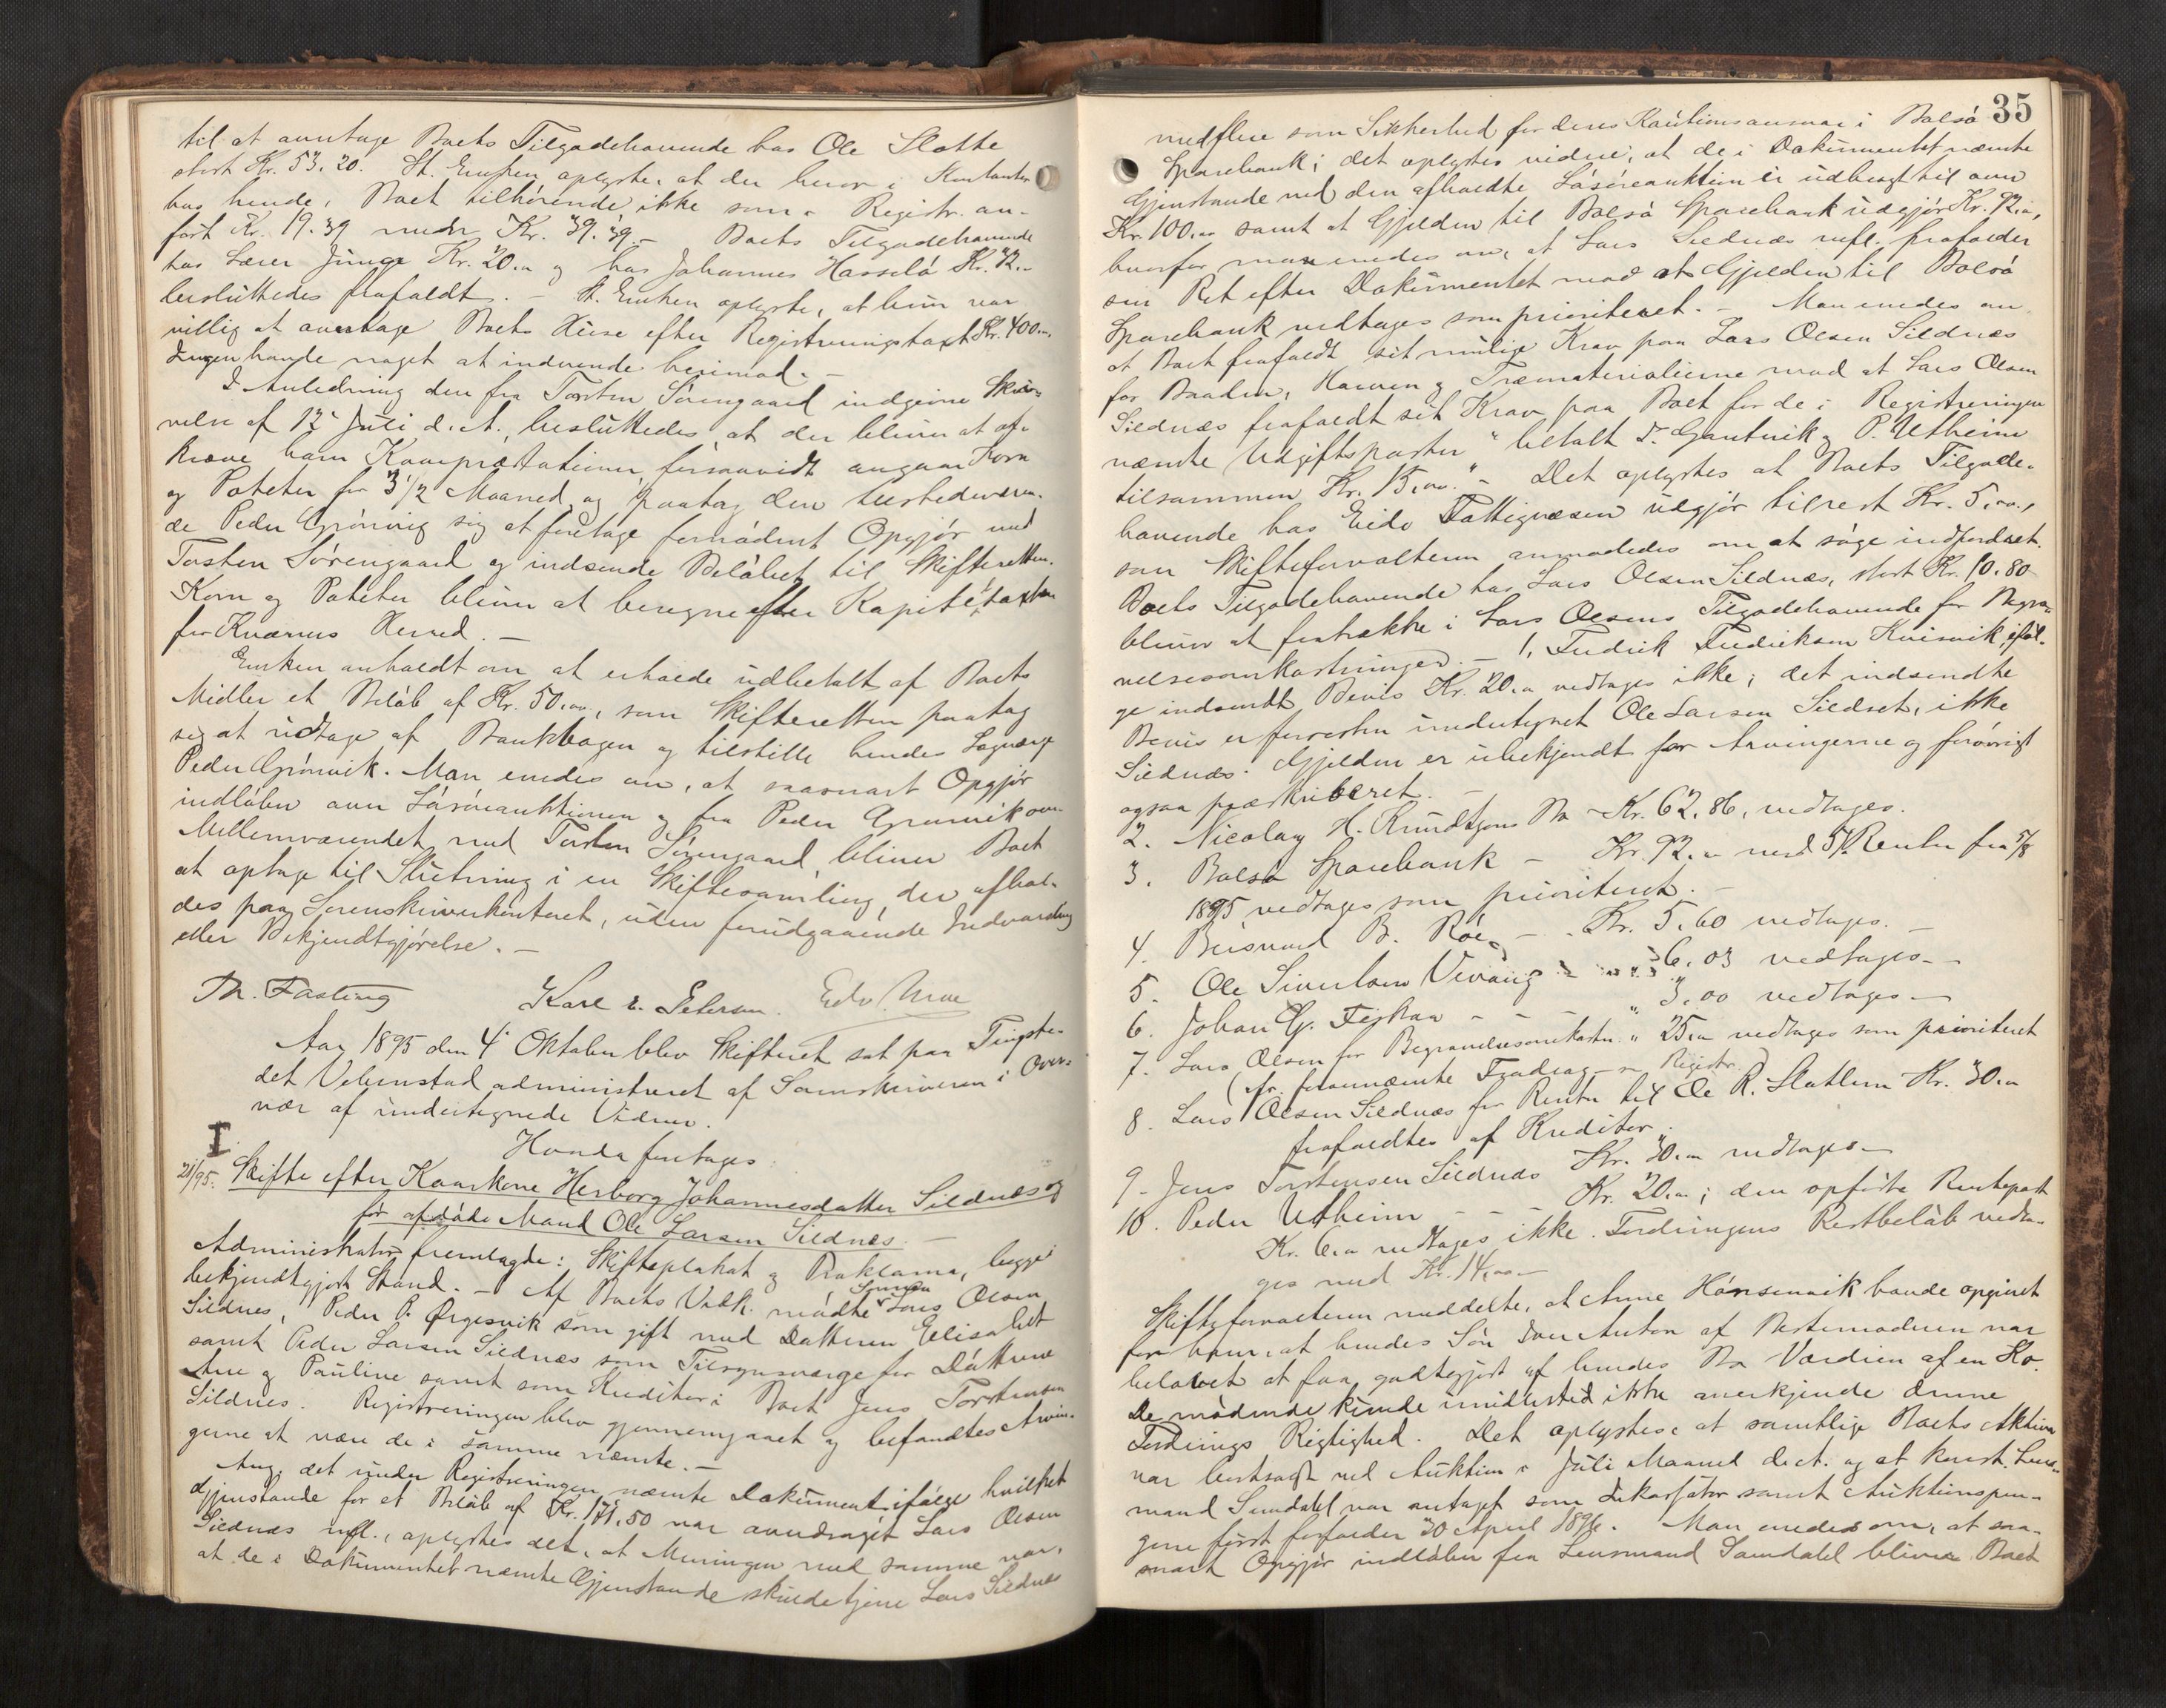 til at overtage Boets Tilgodehavende hos Ole Slatte
stort Kr. 53,20. St. Enken oplyste, at der beror i Kontanter
hos hende, Boet tilhørende ikke som i Registr. an-
ført Kr. 19.39 men Kr. 39.39.- Boets Tilgodehavende
hos Lærer Junge Kr. 20.00 og hos Johannes Hasselø Kr. 12.-
besluttedes frafaldt. - St. Enken oplyste, at hun var
villig at overtage Boets Huse efter Registreringstaxt Kr. 400.00.
Ingen havde noget at indvende herimod. -
I Anledning den fra Torsten Sørengaard indgivne Skri-
velse af 12 Juli d. A., besluttedes, at der bliver at af-
kræve ham Kaarpræstationer, forsaavidt angaar Korn
og Poteter for 3 1/2 Maaned, og paatog den tilstedeværen-
de Peder Grönvig sig at foretage fornødent Opgjør med
Torsten Sørengaard og indsende Beløbet til Skifteretten.
Korn og Poteter bliver at beregne efter Kapitelstaxten
for Kværnes Herred. -
Enken anholdt om at erholde udbetalt af Boets
Midler et Beløb af Kr. 50,00, som Skifteretten paatog
sig at udtage af Bankbogen og tilstille hendes Laugværge
Peder Grönvik. Man enedes om, at saasnart Opgjör
indløber over Løsøreauktionen og fra Peder Grønvik over
Mellemværendet med Torsten Sørengaard, bliver Boet
at optage til Slutning i en Skiftesamling, der afhol-
des paa Sorenskriverkontoret, uden forudgaaende Indvarsling
eller Bekjendtgjørelse. -
Th. Fasting Karl E. Petersen. Edv. Moe
Aar 1895 den 4 Oktober blev Skifteret sat paa Tingste-
det Vebenstad administreret af Sorenskriveren i Over-
vær af undertegnede Vidner.
Hvorda foretages:
I
21/95. Skifte efter Kaarkone Herborg Johannesdatter Sildnes og
før afdøde Mand Ole Larsen Sildnes. -
Administrator fremlagde: Skifteplakat og Proklama, begge i
bekjendtgjort Stand. - Af Boets Vedk. mødte Sønnen Lars Olsen
Sildnes, Peder P. Ørgesvik som gift med Datteren Elisabet
samt Peder Larsen Sildnæs som Tilsynsværge for Døttrene
Ane og Pauline samt som Kreditor i Boet Jens Torstensen
Sildnes. Registreringen blev gjennemgaaet og befandtes Arvin-
gerne at være de i samme nævnte. -
Ang. det under Registreringen nævnte Dokument ifølge hvilket
Gjenstande for et Beløb af Kr. 171,50 var overdraget Lars Olsen
Sildnæs mfl., oplystes det, at Meningen med samme var,
at de i Dokumentet nævnte Gjenstande skulde tjene Lars Sildnes
35
medflere som Sikkerhed for deres Kautionsansvar i Bolsø
Sparebank; det oplystes videre, at de i Dokumentet nævnte
Gjenstande ved den afholdte Løsøreauktion er udbragt til over
Kr. 100,00 samt at Gjelden til Bolsø Sparebank udgjør Kr. 92.00,
hvorfor man enedes om, at Lars Sildnæs mfl. frafalder
sin Ret efter Dokumentet mod at Gjelden til Bolsø
Sparebank vedtages som prioriteret. - Man enedes om
at Boet frafaldt sit mulige Krav paa Lars Olsen Sildnæs
for Baaden, Harven og Træmaterialierne mod at Lars Olsen
Sildnæs frafaldt sit Krav paa Boet for de i Registreringen
nævnte Udgiftsposter "betalt I. Gautvik og P. Utheim
tilsammen Kr. 15,00." - Det oplystes at Boets Tilgode-
havende hos Eide Fattigvæsen udgjør tilrest Kr. 5,00,
som Skifteforvalteren anmodedes om at søge indfordret.
Boets Tilgodehavende hos Lars Olsen Sildnæs, stort Kr. 10.80
bliver at fratrække i Lars Olsens Tilgodehavende for Begra-
velsesomkostninger. - 1, Fredrik Fredriksen Kvisvik, iføl-
ge indsendt Bevis Kr. 20.00 vedtages ikke; det indsendte
Bevis er forresten undertegnet Ole Larsen Sildset, ikke
Sildnæs. Gjelden er ubekjendt for Arvingerne og forøvrigt
ogsaa præskriberet. -
2. Nicolay H. Knudtzons Bo - Kr. 62,86, vedtages.
3. Bolsø Sparebank - Kr. 92.00 med 5% Renter fra 5/8
1895 vedtages som prioriteret. -
4. Beisvaad B. Röe, - - Kr. 5.60 vedtages. -
5. Ole Sivertsen Vevang - - - 36.03 vedtages. -
6. Johan G. - - - " 3,00 vedtages -
7. Lars Olsen for Begravelsesomkostn. " 25.00 vedtages som prioriteret
(cfr. forannævnte Fradrag - Registr.)
8. Lars Olsen Sildnæs for Renter til Ole R. Slatlem Kr. 30.00
frafaldtes af Kreditor.
9. Jens Torstensen Sildnæs Kr. 30.00 vedtages. -
10. Peder Utheim - - Kr. 20.00; den opførte Rentepost
Kr. 6.00 vedtages ikke. Fordringens Restbeløb vedta-
ges med Kr. 14,00 -
Skifteforvalteren meddelte, at Anne Hansenvik havde opgivet
for ham, at hendes Søn Iver Anton af Bestemoderen var
belovet at faa godtgjort af hendes Bo Værdien af en Ko.
De mødende kunde imidlertid ikke anerkjende denne
Fordrings Rigtighed. Det oplystes, at samtlige Boets Aktiva
var bortsolgt ved Auktion i Juli Maaned d. A. og at konst. Lens-
mand Sundahl var antaget som Inkassator samt Auktionspen-
gene først forfalder 30 April 1896. - Man enedes om, at saa-
snart Opgjør indløber fra Lensmand Sundahl bliver Boet